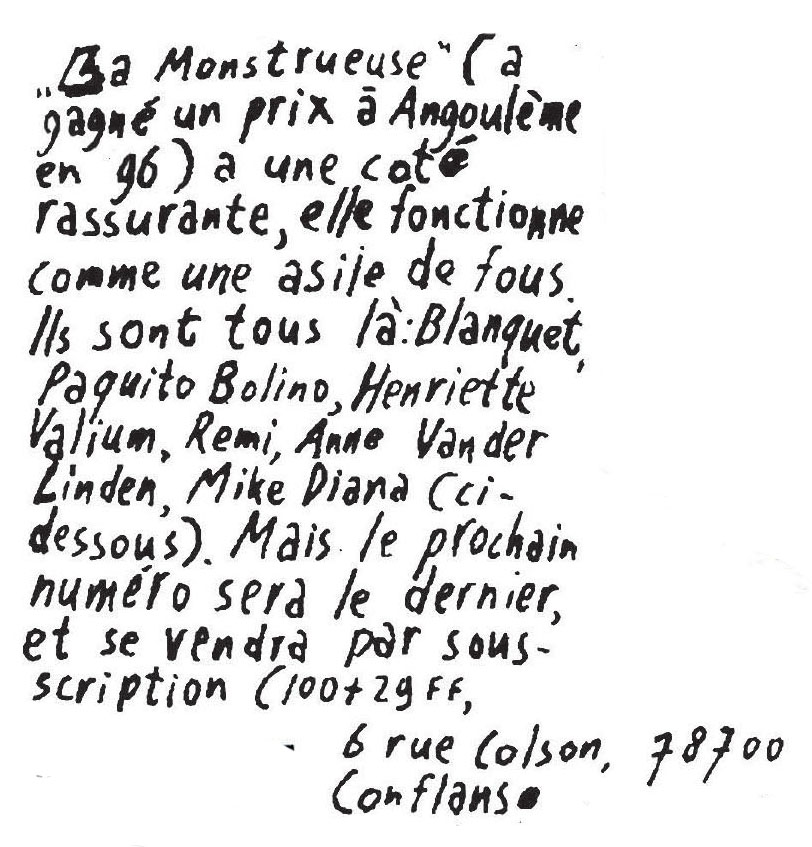 „La Monstrueuse" (a
gagné un prix à Angoulème
en 96) a une coté
rassurante, elle fonctionne
comme une asile de fous.
Ils sont tous là: Blanquet,
Paquito Bolino, Henriette
Valium, Remi, Anne Van der
Linden, Mike Diana (ci-
dessous). Mais le prochain
numéro sera le dernier,
et se vendra par sous-
scription (100+29 FF,
6 rue Colson, 78700
Conflans.